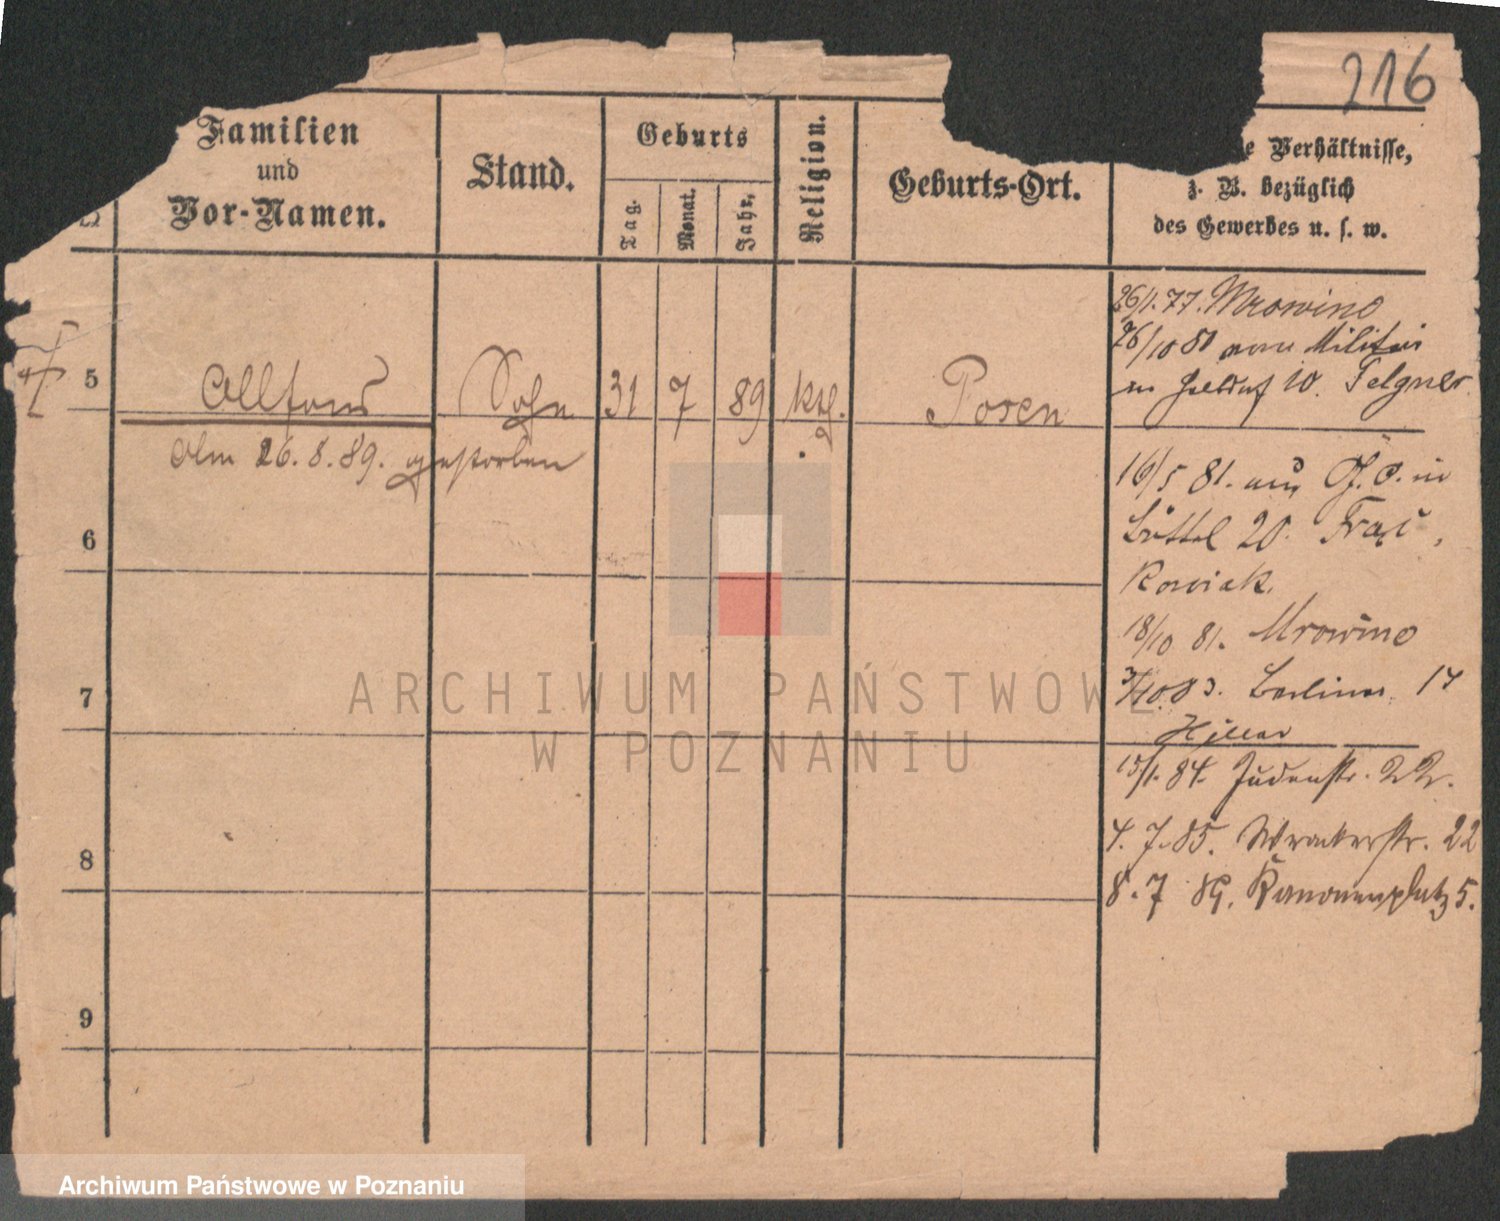 216
Familien
und
Vor-Namen.
Stand.
Geburts
Tag.
Monat.
Jahr.
Religion.
Geburts-Ort.
e Verhältnisse,
z. B. bezüglich
des Gewerbes u. s. w.
5 Allfons Sohn 31 7 89 kth. Posen
Am 26.8.89. gestorben
6
7
8
9
26/1.77. Mrowino
26/10 80 vom Militair
in 10. Felgner
16/5 81. aus in
Büttel 20.
18/10 81. Mrowino
3/10.83. Berliner 17
15/1.84. Judenstr. 22.
4.7.85. Wronkerstr. 22
8.7 89. Kanonenplatz 5.
ARCHIWUM PAŃSTWOWE
W POZNANIU
Archiwum Państwowe w Poznaniu